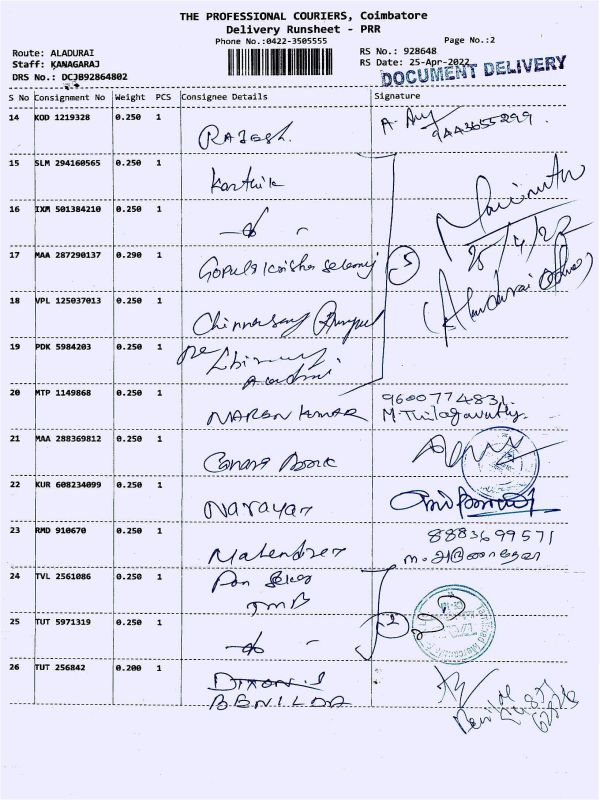 THE PROFESSIONAL COURIERS, Coimbatore
Delivery Runsheet - PRR
Phone No.:0422-3505555
Page No.:2
Route: ALADURAI
RS No.: 928648
Staff: KANAGARAJ
RS Date: 25-Apr-2022
DRS No.: DCJB92864802
DOCUMENT DELIVERY
S No Consignment No Weight PCS Consignee Details Signature
14 KOD 1219328 0.250 1
Rajesh.
15 SLM 294160565 0.250 1
Karthik
16 IXM 501384210 0.250 1
17 MAA 287290137 0.290 1
25/4/22
5
18 VPL 125037013 0.250 1
19 PDK 5984203 0.250 1
20 MTP 1149868 0.250 1
NAREN KUMAR
9600774831
M.Thilagavathy.
21 MAA 288369812 0.250 1
Canara Bank
22 KUR 608234099 0.250 1
Narayan
23 RMD 910670 0.250 1
Mahendren
8883699571
24 TVL 2561086 0.250 1
TMB
25 TUT 5971319 0.250 1
2
26 TUT 256842 0.200 1
BENILDA